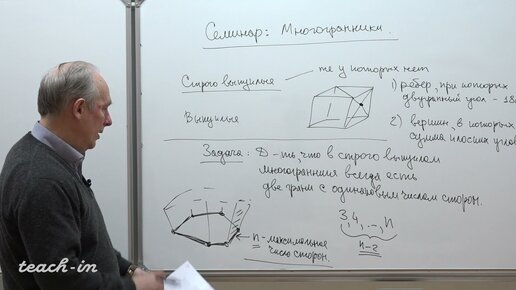 Семинар: Многогранники.
Строго выпуклые — те у которых нет
1) рёбер, при которых
двугранный угол - 18
Выпуклые
2) вершин, в которых
сумма плоских углов
Задача: Д-ть, что в строго выпуклом
многограннике всегда есть
две грани с одинаковым числом сторон.
3, 4, ..., n
n-2
n - максимальное
число сторон.
teach-in